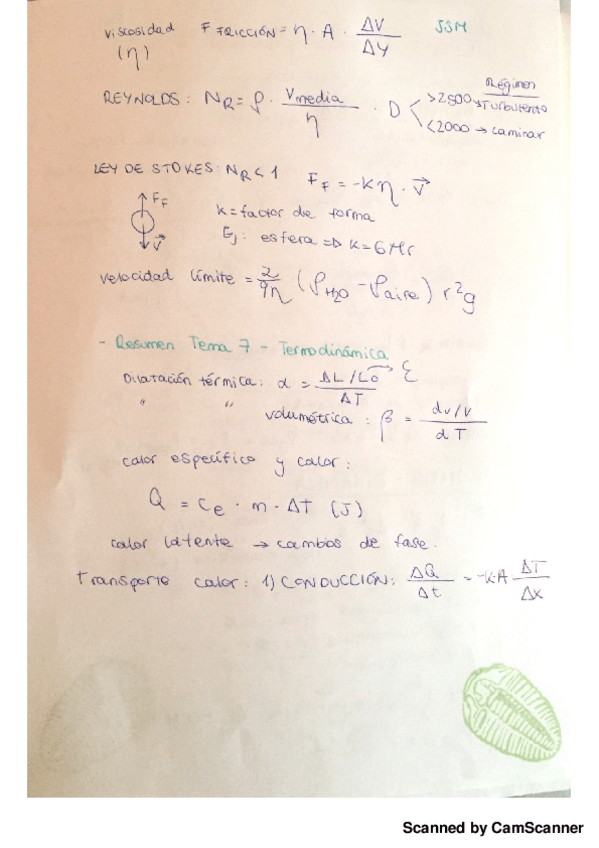 viscosidad F FRICCIÓN = η · A · ΔV/ΔY JSM
(η)
Régimen
REYNOLDS: NR = ρ · Vmedia/η · D >2500 → Turbulento
<2000 → Laminar
LEY DE STOKES: NR < 1 FF = -kη · v⃗
FF
v⃗
k = factor de forma
Ej: esfera => k = 6πr
velocidad límite = 2/9η (ρH2O - ρaire) r²g
- Resumen Tema 7 - Termodinámica
Dilatación térmica: α = ΔL/L0 / ΔT → ε
" " volumétrica: β = dv/v / dT
calor específico y calor:
Q = Ce · m · ΔT (J)
calor latente → cambios de fase.
Transporte calor: 1) CONDUCCIÓN: ΔQ/Δt = -k·A ΔT/Δx
Scanned by CamScanner